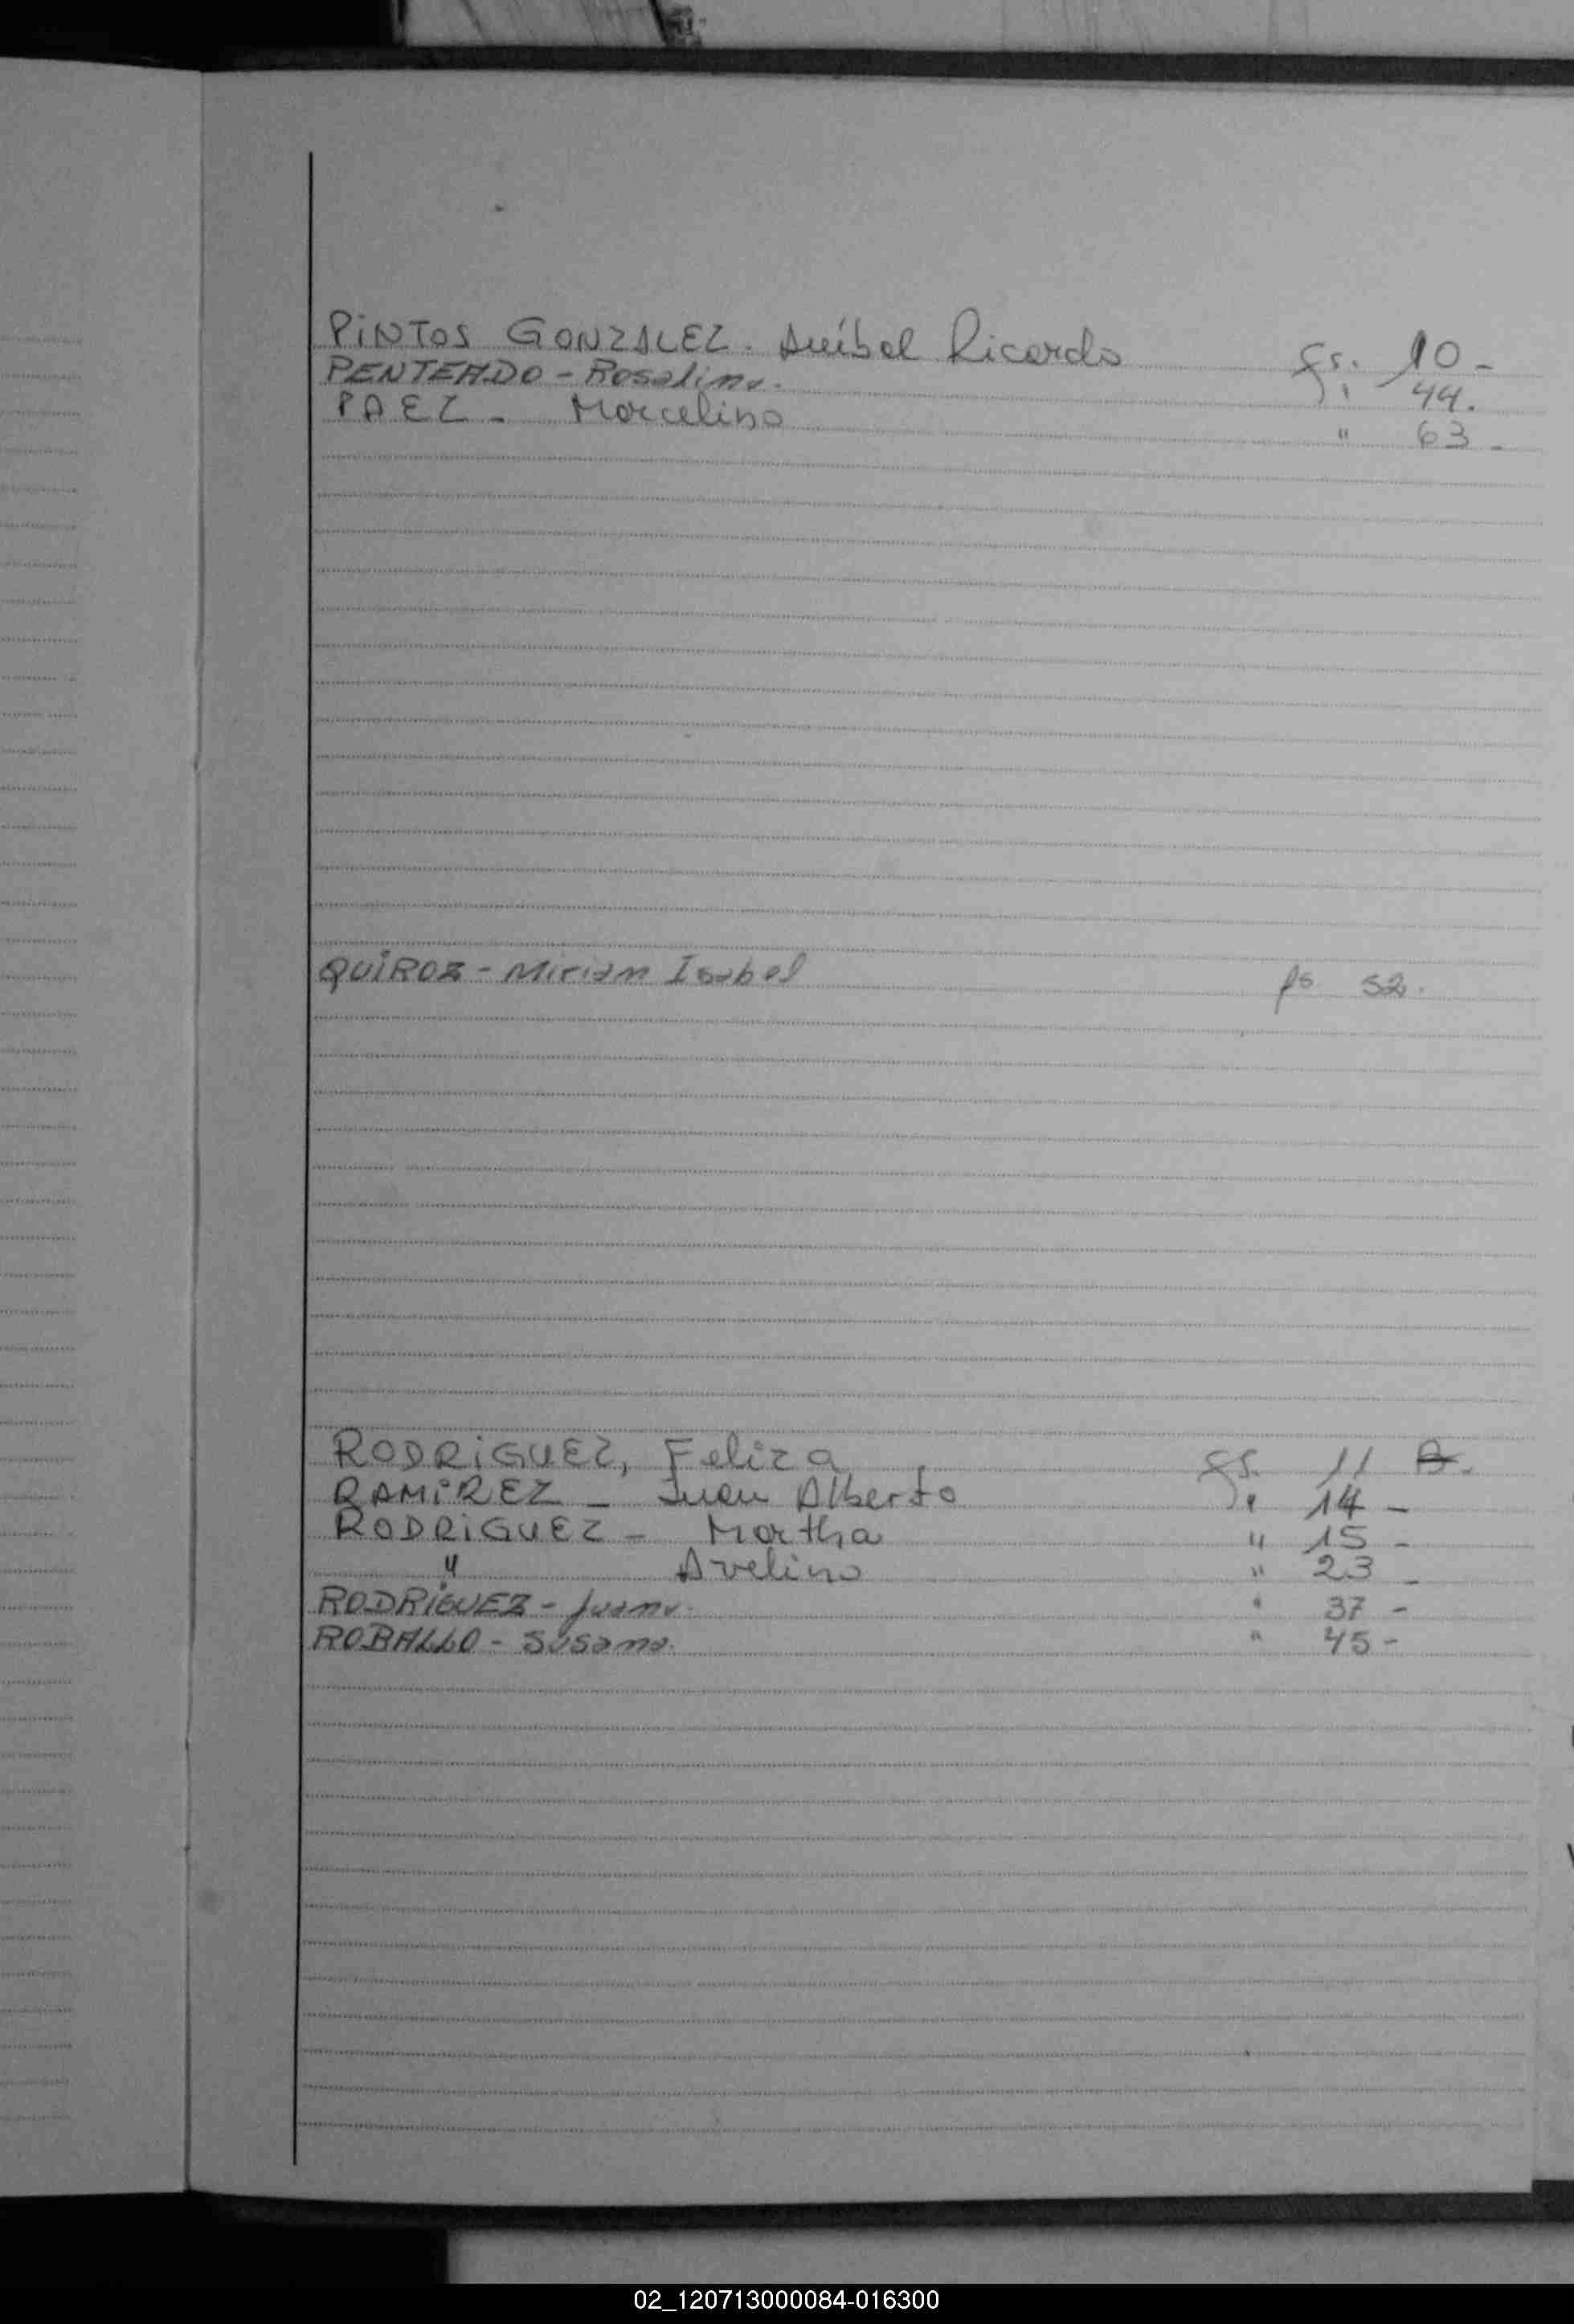 PiNTOS GONZALEZ. Aníbal Ricardo fs. 10 -
PENTEADO - Rosalino. " 44.
PAEZ - Marcelino " 63 -
QUiROZ - Miriam Isabel fs 52.
RODRiGUEZ, Feliza fs. 11
RAMiREZ - Juan Alberto " 14 -
RODRiGUEZ - Martha " 15 -
" Avelino " 23 -
RODRiGUEZ - Juana. " 37 -
ROBALLO - Susana. " 45 -
02_120713000084-016300